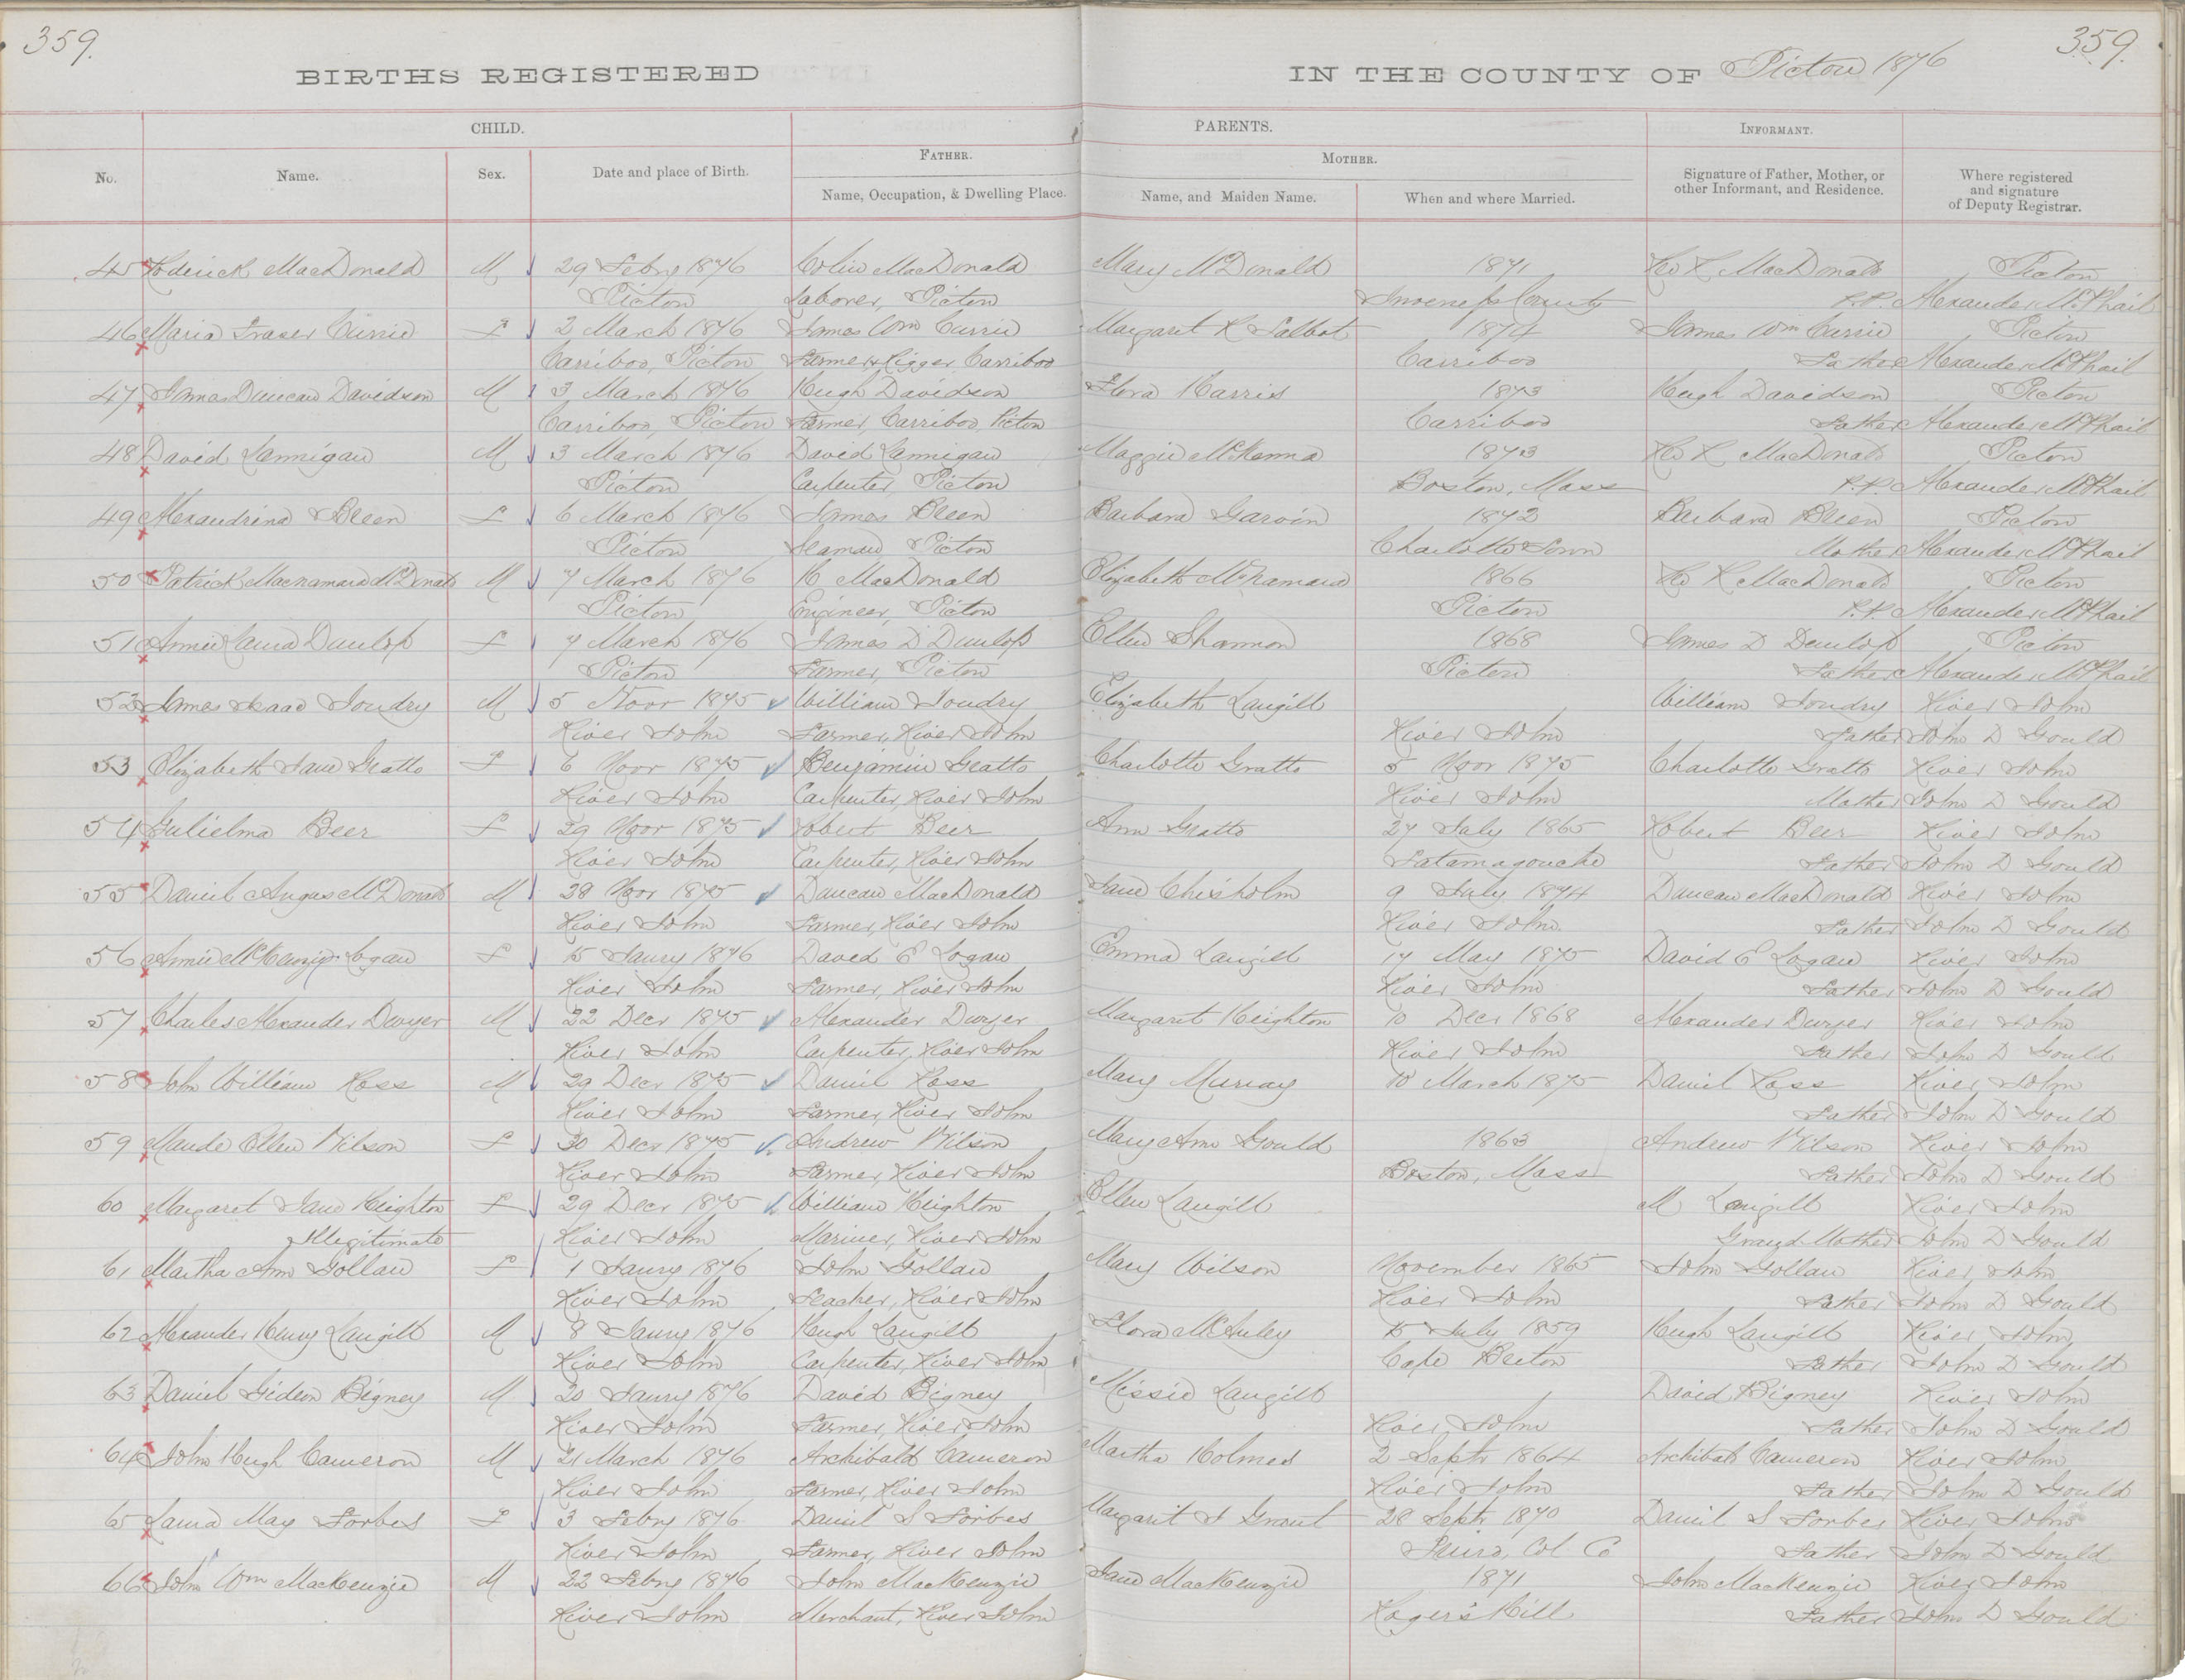 359.
359.
BIRTHS REGISTERED IN THE COUNTY OF Pictou 1876
CHILD. PARENTS. INFORMANT.
FATHER. MOTHER.
No. Name. Sex. Date and place of Birth. Name, Occupation, & Dwelling Place. Name, and Maiden Name. When and where Married. Signature of Father, Mother, or other Informant, and Residence. Where registered and signature of Deputy Registrar.
45 Roderick MacDonald M 29 Febry 1876 Colin MacDonald Mary McDonald 1871 MacDonald Pictou
Pictou Laborer, Pictou Inverness County P.P. Alexander McPhail
46 Maria Fraser Currie F 2 March 1876 James Wm Currie Margaret R Talbot 1874 James Wm Currie Pictou
Carriboo, Pictou Farmer & Rigger, Carriboo Carriboo Father Alexander McPhail
47 James Duncan Davidson M 3 March 1876 Hugh Davidson Flora Harris 1873 Hugh Davidson Pictou
Carriboo, Pictou Farmer, Carriboo, Pictou Carriboo Father Alexander McPhail
48 David Lannigan M 3 March 1876 David Lannigan Maggie McKenna 1873 MacDonald Pictou
Pictou Carpenter Pictou Boston, Mass P.P. Alexander McPhail
49 Alexandrina Breen F 6 March 1876 James Breen Barbara Garvin 1872 Barbara Breen Pictou
Pictou Seaman Pictou Charlotte Town Mother Alexander McPhail
50 Patrick Macnamara McDonald M 7 March 1876 H MacDonald Elizabeth McNamara 1866 MacDonald Pictou
Pictou Engineer, Pictou Pictou P.P. Alexander McPhail
51 Annie Laura Dunlop F 7 March 1876 James D Dunlop Ellen Shannon 1868 James D Dunlop Pictou
Pictou Farmer, Pictou Pictou Father Alexander McPhail
52 James Isaac Joudry M 5 Novr 1875 William Joudry Elizabeth Langill William Joudry River John
River John Farmer, River John River John Father John D Gould
53 Elizabeth Jane Gratto F 6 Novr 1875 Benjamin Gratto Charlotte Gratto 5 Novr 1875 Charlotte Gratto River John
River John Carpenter, River John River John Mother John D Gould
54 Gulielma Beer F 29 Novr 1875 Robert Beer Ann Gratto 27 July 1865 Robert Beer River John
River John Carpenter, River John Tatamagouche Father John D Gould
55 Daniel Angus McDonald M 28 Novr 1875 Duncan MacDonald Jane Chisholm 9 July 1874 Duncan MacDonald River John
River John Farmer, River John River John Father John D Gould
56 Annie McKenzie Logan F 15 Janry 1876 David E Logan Emma Langill 17 May 1875 David E Logan River John
River John Farmer, River John River John Father John D Gould
57 Charles Alexander Dwyer M 22 Decr 1875 Alexander Dwyer Margaret Heighton 10 Decr 1868 Alexander Dwyer River John
River John Carpenter, River John River John Father John D Gould
58 John William Ross M 29 Decr 1875 Daniel Ross Mary Murray 18 March 1875 Daniel Ross River John
River John Farmer, River John Father John D Gould
59 Maude Ellen Wilson F 30 Decr 1875 Andrew Wilson Mary Ann Gould 1863 Andrew Wilson River John
River John Farmer, River John Boston, Mass Father John D Gould
60 Margaret Jane Heighton F 29 Decr 1875 William Heighton Ellen Langill M Langill River John
Illegitimate River John Mariner, River John Grand Mother John D Gould
61 Martha Ann Gollan F 1 Janry 1876 John Gollan Mary Wilson November 1865 John Gollan River John
River John Teacher, River John River John Father John D Gould
62 Alexander Henry Langill M 8 Janry 1876 Hugh Langill Flora McAuley 15 July 1859 Hugh Langill River John
River John Carpenter, River John Cape Breton Father John D Gould
63 Daniel Gideon Bigney M 20 Janry 1876 David Bigney Missie Langill David Bigney River John
River John Farmer, River John River John Father John D Gould
64 John Hugh Cameron M 21 March 1876 Archibald Cameron Martha Holmes 2 Septr 1864 Archibald Cameron River John
River John Farmer, River John River John Father John D Gould
65 Laura May Forbes F 3 Febry 1876 Daniel S Forbes Margaret J Grant 28 Septr 1870 Daniel S Forbes River John
River John Farmer, River John Truro, Col. Co Father John D Gould
66 John Wm MacKenzie M 22 Febry 1876 John MacKenzie Jane MacKenzie 1871 John MacKenzie River John
River John Merchant, River John Roger's Hill Father John D Gould